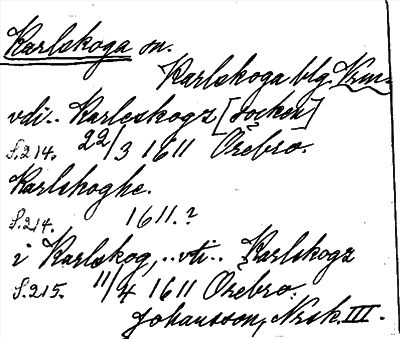 Karlskoga sn.
Karlskoga blg. Vrm.
vdi.. Karleskogz [socken]
S.214. 22/3 1611 Örebro.
Karlskoghe.
S.214. 1611.?
i Karlskog,..vti.. Karlskogz
S.215. 11/4 1611 Örebro.
Johansson, Nrsk. III.